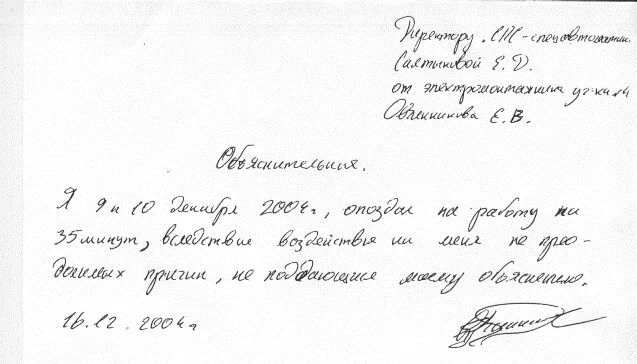 Директору СПС-спецавтоматик
Салтыковой Е. Д.
от электромонтажника уч-ка №4
Овчинникова Е. В.
Объяснительная.
Я 9 и 10 декабря 2004г, опоздал на работу на
35 минут, вследствие воздействье на меня не прео-
долимых причин, не поддающиеся моему объяснению.
16.12.2004г